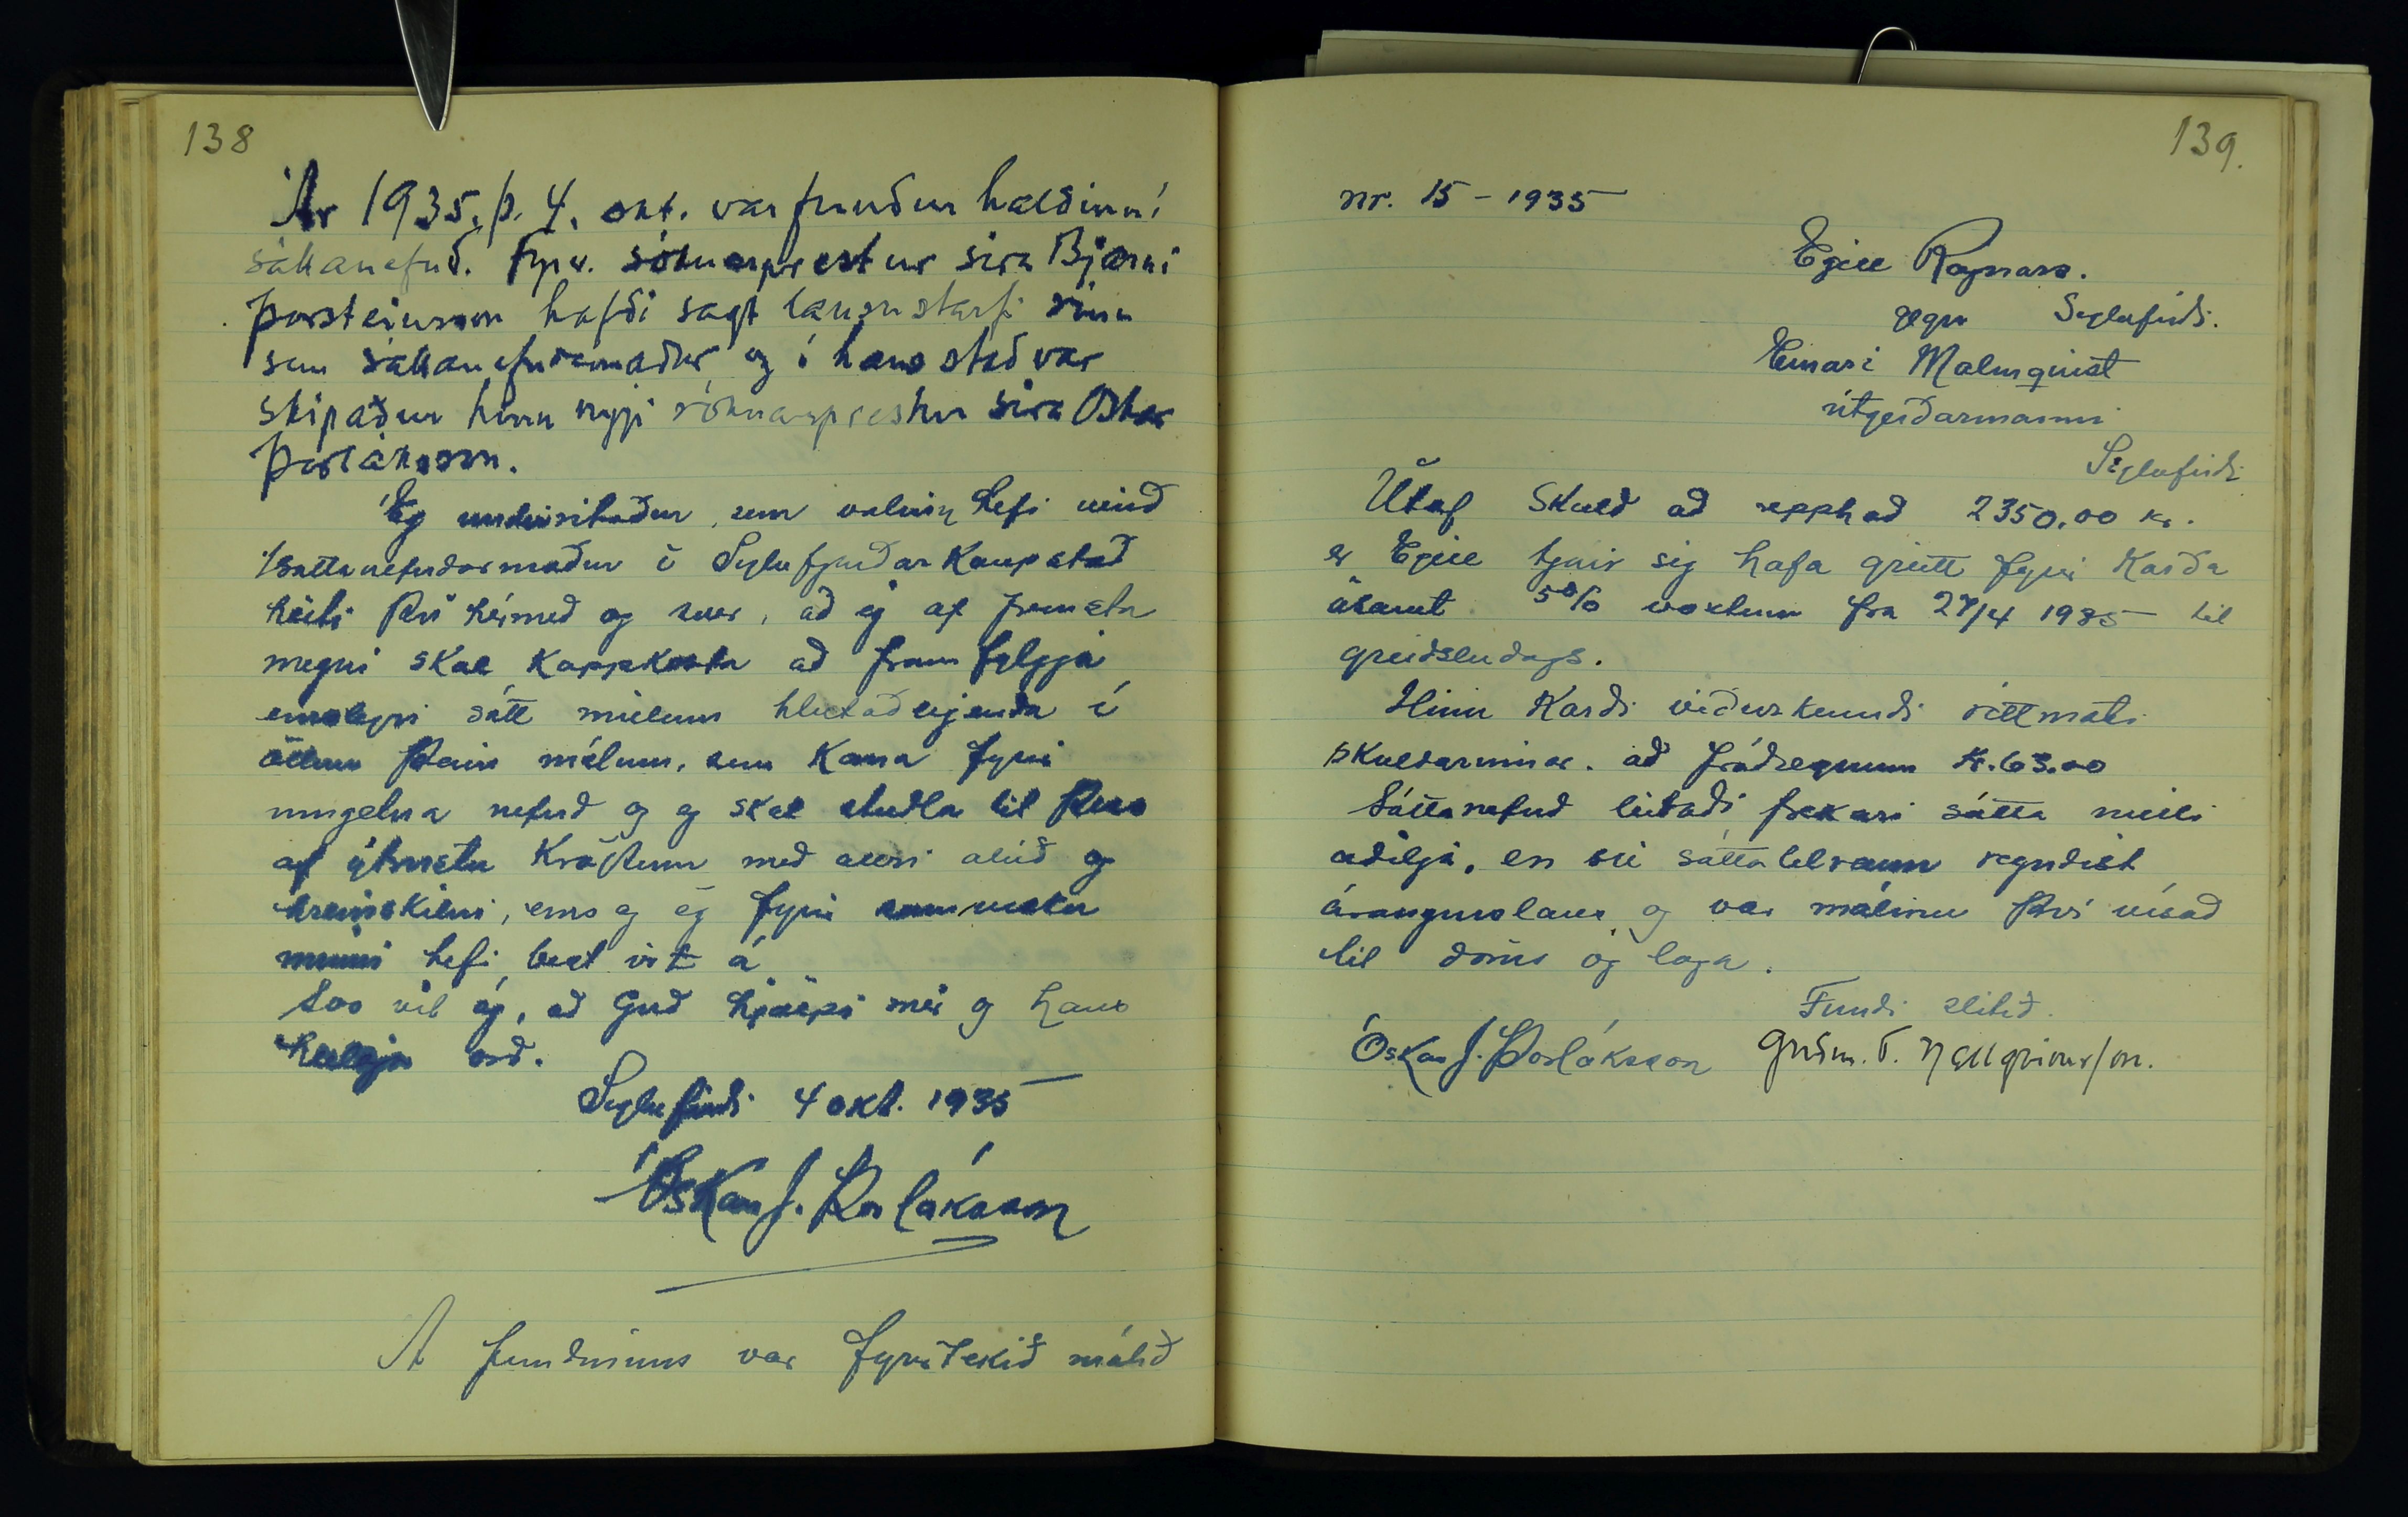 138
Ár 1935, þ. 4. okt. var fundur haldinn í
sáttanefnd. Fyrv. sóknarprestur síra Bjarni
Þorsteinsson hafði sagt lausu starfi sínu
sem sáttanefndarmaður og í hans stað var
skipaður hinn nýji sóknarprestur síra Óskar
Þorláksson.
Ég undirritaður, sem valinn hefi verið
sáttanefndarmaður í Siglufjarðarkaupstað
heiti því hérmeð og sver, að ég af fremsta
megni skal kappkosta að framfylgja
einslegri sátt millum hlutaðeigenda í
öllum þeim málum, sem koma fyrir
nefnd og eg skal stuðla til þess
af ýtrustu kröftum með allri alúð og
hreinskilni, eins og ég fyrir samvisku
minni hefi best vit á
Svo vil ég, að Guð hjálpi mér og hans
heilaga orð.
Siglufirði 4 okt. 1935
Óskar J. Þorláksson
Á fundinum var fyrirtekið málið
139.
nr. 15 - 1935
Egill Ragnars.
gegn Siglufirði.
Einari Malmquist
útgerðarmanni
Siglufirði
Útaf skuld að upphæð 2350.00 kr.
er Egill tjáir sig hafa greitt fyrir kærða
ásamt 5% vöxtum frá 27/4 1935 til
greiðsludags.
Hinn kærði viðurkenndi réttmæti
skuldarinnar. að frádregnum kr. 63.00
Sáttanefnd leitaði frekari sátta milli
aðilja, en sú sáttatilraun reyndist
árangurslaus og var málinu því vísað
til dóms og laga.
Fundi slitið.
Óskar J. Þorláksson Guðm. T. Hallgrímsson.